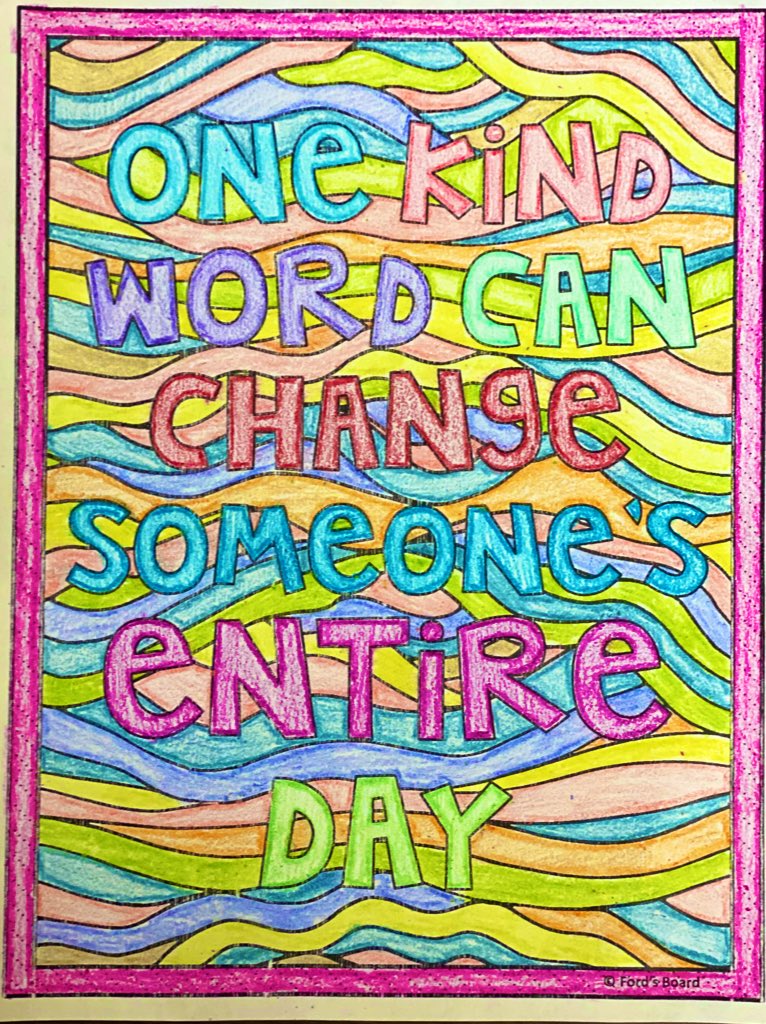 ONe KiND
WORD CAN
CHANge
SOMeONe'S
eNTiRe
DAY
© Ford's Board